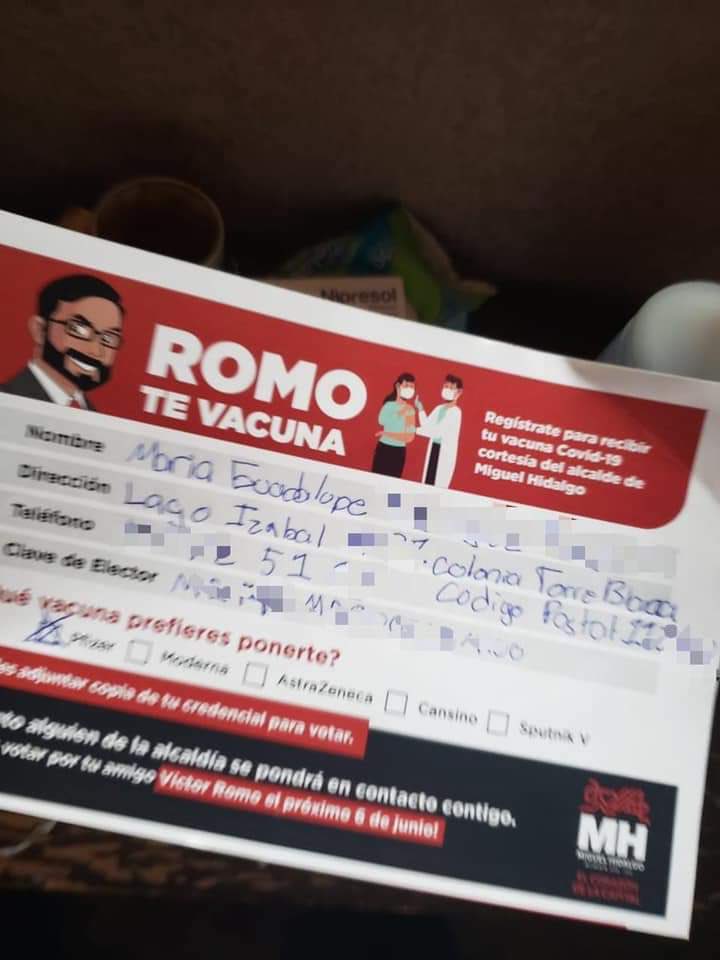 Nipresol
ROMO
TE VACUNA
Regístrate para recibir
tu vacuna Covid-19
cortesía del alcalde de
Miguel Hidalgo
Nombre María Guadalupe
Dirección Lago Izabal Colonia Torre Blanca
Teléfono 51 Codigo Postal 11
Clave de Elector
qué vacuna prefieres ponerte?
Pfizer Moderna AstraZeneca Cansino Sputnik V
adjuntar copia de tu credencial para votar.
alguien de la alcaldía se pondrá en contacto contigo.
votar por tu amigo Víctor Romo el próximo 6 de junio!
MH
MIGUEL HIDALGO